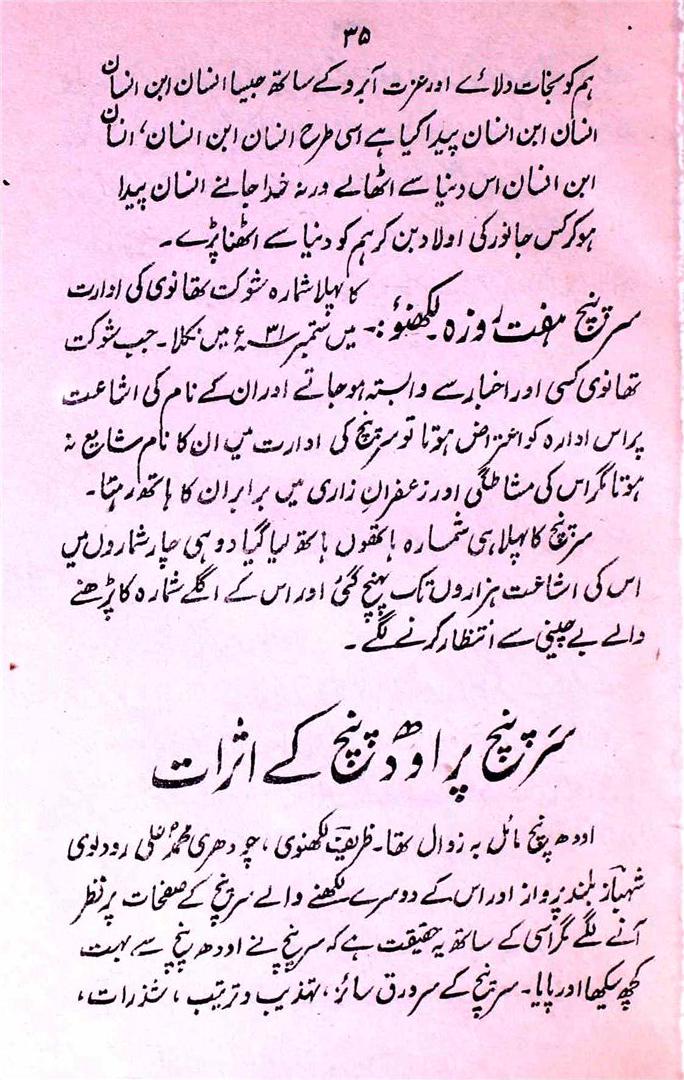 ۳۵
ہم کو نجات دلائے اور عزت آبرو کے ساتھ جیسا انسان ابن انسان
انسان ابن انسان پیدا کیا ہے اسی طرح انسان ابن انسان، انسان
ابن انسان اس دنیا سے اٹھالے ورنہ خدا جانے انسان پیدا
ہوکر کس جانور کی اولاد بن کر ہم کو دنیا سے اٹھنا پڑے۔
کا پہلا شمارہ شوکت تھانوی کی ادارت
سرپنچ ہفت روزہ لکھنؤ:- میں ستمبر ۳۱ء میں نکلا۔ جب شوکت
تھانوی کسی اور اخبار سے وابستہ ہوجاتے اور ان کے نام کی اشاعت
پر اس ادارہ کو اعتراض ہوتا تو سرپنچ کی ادارت میں ان کا نام شایع نہ
ہوتا مگر اس کی مشاطگی اور زعفران زاری میں برابر ان کا ہاتھ رہتا۔
سرپنچ کا پہلا ہی شمارہ ہاتھوں ہاتھ لیا گیا دو ہی چار شماروں میں
اس کی اشاعت ہزاروں تک پہنچ گئی اور اس کے اگلے شمارہ کا پڑھنے
والے بے چینی سے انتظار کرنے لگے۔
سرپنچ پر اودھ پنچ کے اثرات
اودھ پنچ مائل بہ زوال تھا۔ ظریف لکھنوی، چودھری محمد علی رودلوی
شہباز بلند پرواز اور اس کے دوسرے لکھنے والے سرپنچ کے صفحات پر نظر
آنے لگے مگر اسی کے ساتھ یہ حقیقت ہے کہ سرپنچ نے اودھ پنچ سے بہت
کچھ سیکھا اور پایا۔ سرپنچ کے سرورق سائز، تہذیب و ترتیب، شذرات،